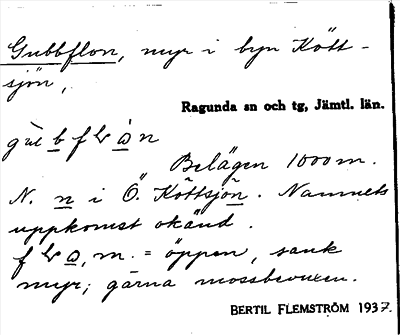 Gubbflon, myr i byn Kött-
sjön,
Ragunda sn och tg, Jämtl. län.
Belägen 1000 m.
N. n i Ö. Köttsjön. Namnets
uppkomst okänd.
m. = öppen, sank
myr; gärna mossbevuxen.
BERTIL FLEMSTRÖM 1937.